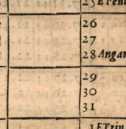 25
26
27
28 Angar
29
30
31
1